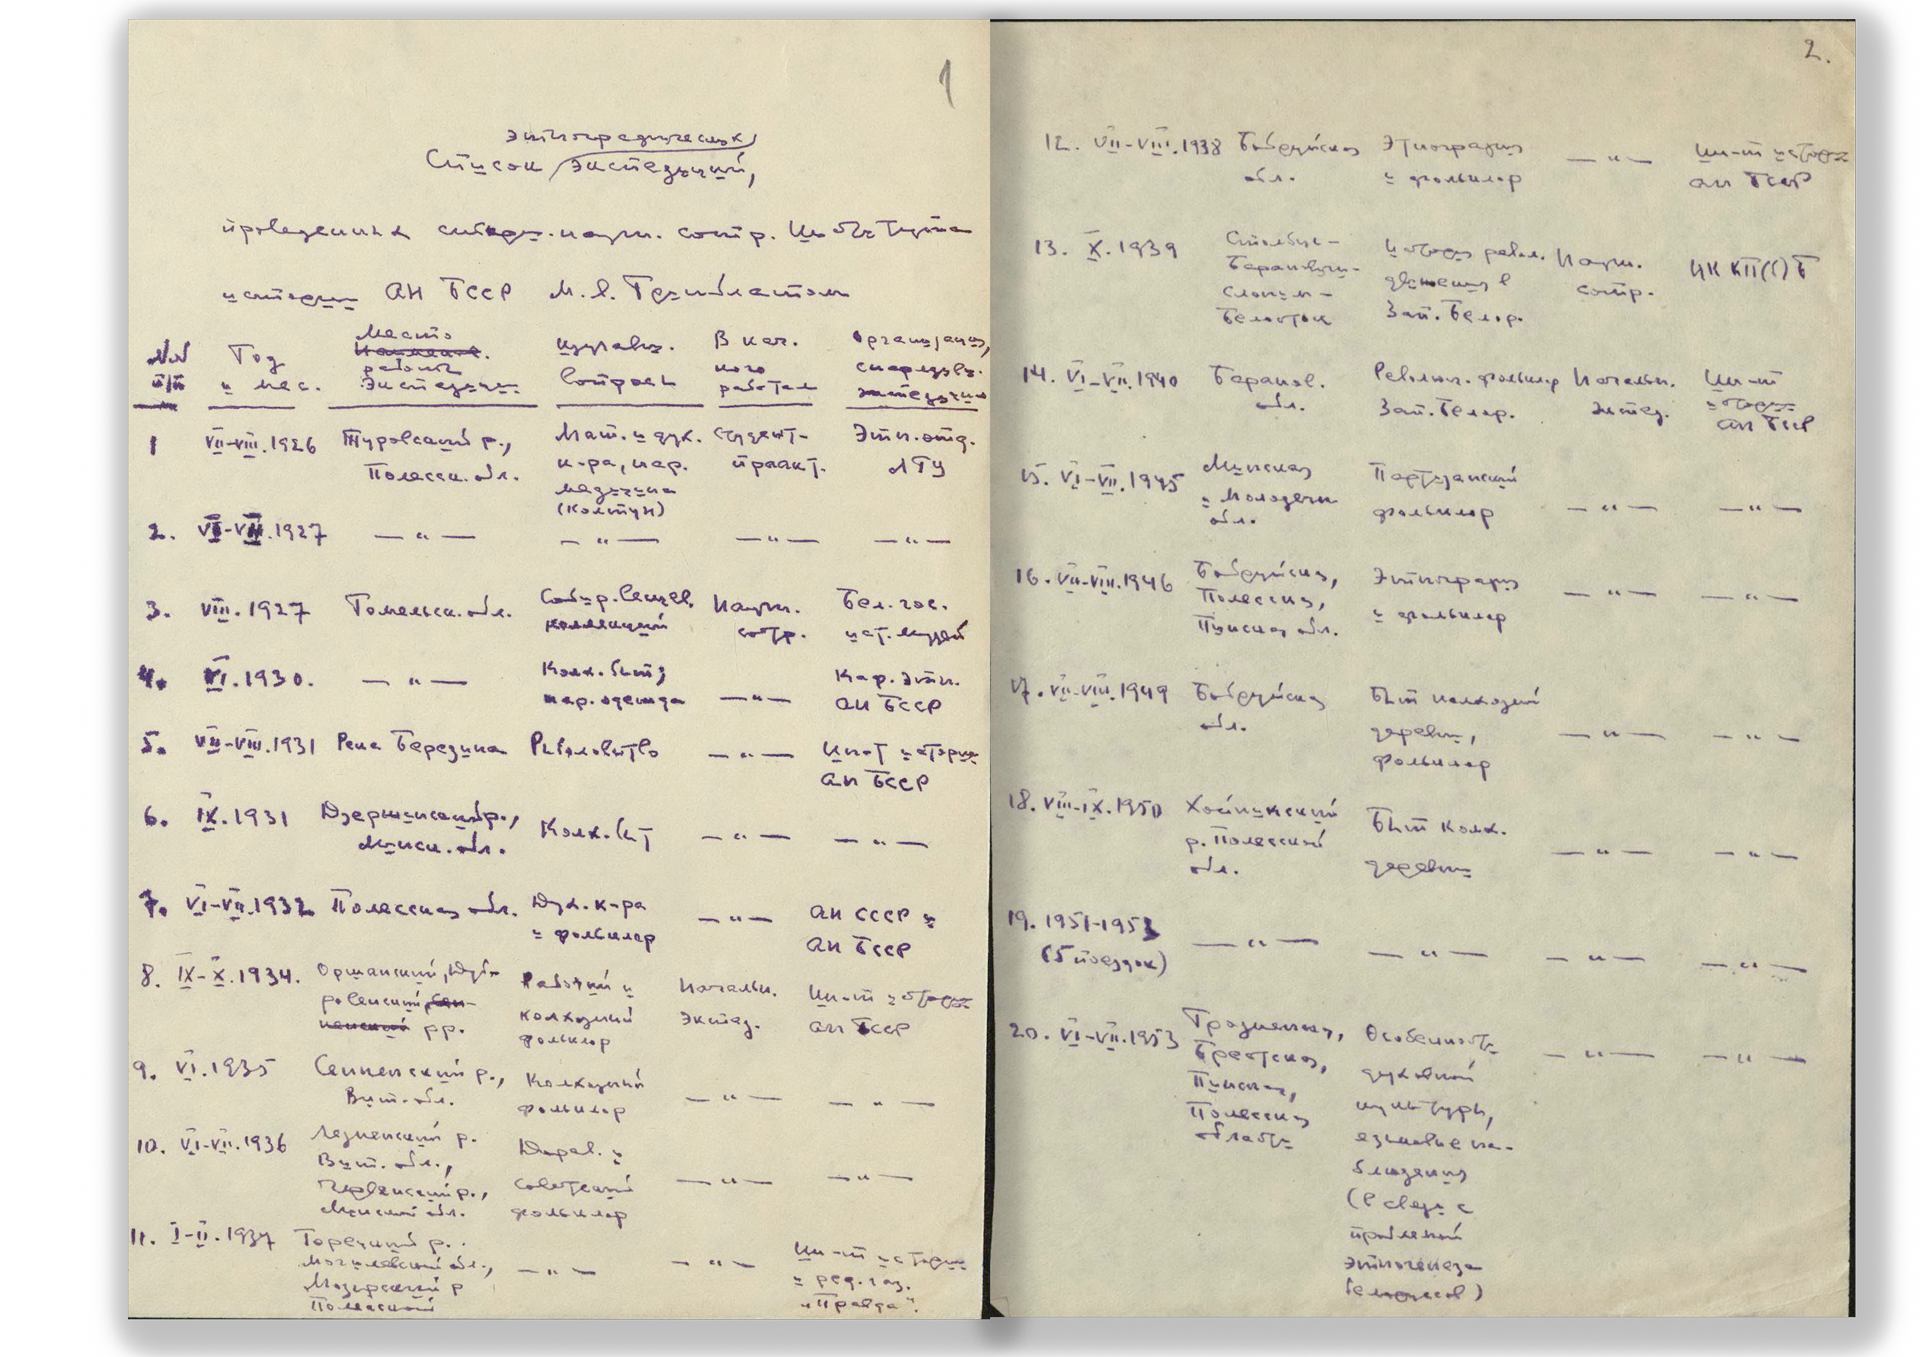 1
этнографических
Список экспедиций,
проведенных старш. научн. сотр. Института
истории АН БССР М. Я. Гринблатом
№№ п/п
Год и мес.
Место работы экспедиции
изучавш. вопросы
В кач. кого работал
Организация, снарядивш. экспедицию
1 VII-VIII.1926 Туровский р., Мат. и дух. студент- Этн. отд.
Полесск. обл. к-ра, нар. практ. ЛГУ
медицина
(колтун)
2. VI-VII.1927 — " — — " — — " — — " —
3. VIII.1927 Гомельск. обл. Собир. вещев. Научн. Бел. гос.
коллекций сотр. ист. музей
4. VI.1930. — " — Колх. быт, — " — Каф. этн.
нар. одежда АН БССР
5. VII-VIII.1931 Река Березина Рыболовство — " — Инст истории
АН БССР
6. IX.1931 Дзержинский р., Колх. быт — " — — " —
Минск. обл.
7. VI-VII.1932 Полесская обл. Дух. к-ра — " — АН СССР и
и фольклор АН БССР
8. IX-X.1934. Оршанский, Дуб- Рабочий и Начальн. Ин-т истории
ровенский колхозный экспед. АН БССР
рр. фольклор
9. VI.1935 Сенненский р., Колхозный — " — — " —
Вит. обл. фольклор
10. VI-VII.1936 Лезненский р. Дорев. и — " — — " —
Вит. обл., советский
Червенский р., фольклор
Минской обл.
11. I-II.1937 Горецкий р. — " — — " — Ин-т истории
Могилевской обл., и ред. газ.
Мозырский р „Правда".
Полесской
2.
12. VII-VIII.1938 Бобруйская Этнография — " — Ин-т истории
обл. и фольклор АН БССР
13. X.1939 Столбцы- История револ. Научн. ЦК КП(б)Б
Барановичи- движения в сотр.
Слоним- Зап. Белор.
Белосток
14. VI-VII.1940 Баранов. Револют. фольклор Начальн. Ин-т
обл. Зап. Белор. экспед. истории
АН БССР
15. VI-VII.1945 Минская Партизанский — " — — " —
и Молодечн фольклор
обл.
16. VII-VIII.1946 Бобруйская, Этнография — " — — " —
Полесская, и фольклор
Пинская обл.
17. VII-VIII.1949 Бобруйская Быт колхозной — " — — " —
обл. деревни,
фольклор
18. VIII-IX.1950 Хойникский Быт колх. — " — — " —
р. Полесской деревни
обл.
19. 1951-1953 — " — — " — — " — — " —
(5 поездок)
20. VI-VII.1953 Гродненская, Особенности — " — — " —
Брестская, духовной
Пинская, культуры,
Полесская языковые на-
области блюдения
(в связи с
проблемой
этногенеза
белорусов)